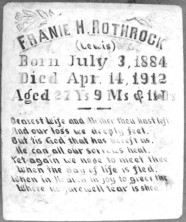 FRANIE H. ROTHROCK
(Lewis)
Born July 3, 1884
Died Apr. 14, 1912
Aged 27 Ys 9 Ms & 11 Ds
Dearest wife and Mother thou hast left
And our loss we deeply feel.
But tis God that hath bereft us.
He can all our sorrows heal.
Yet again we hope to meet thee
When the day of life is fled.
When in Heaven in joy to greet thee
Where no farewell tear is shed.